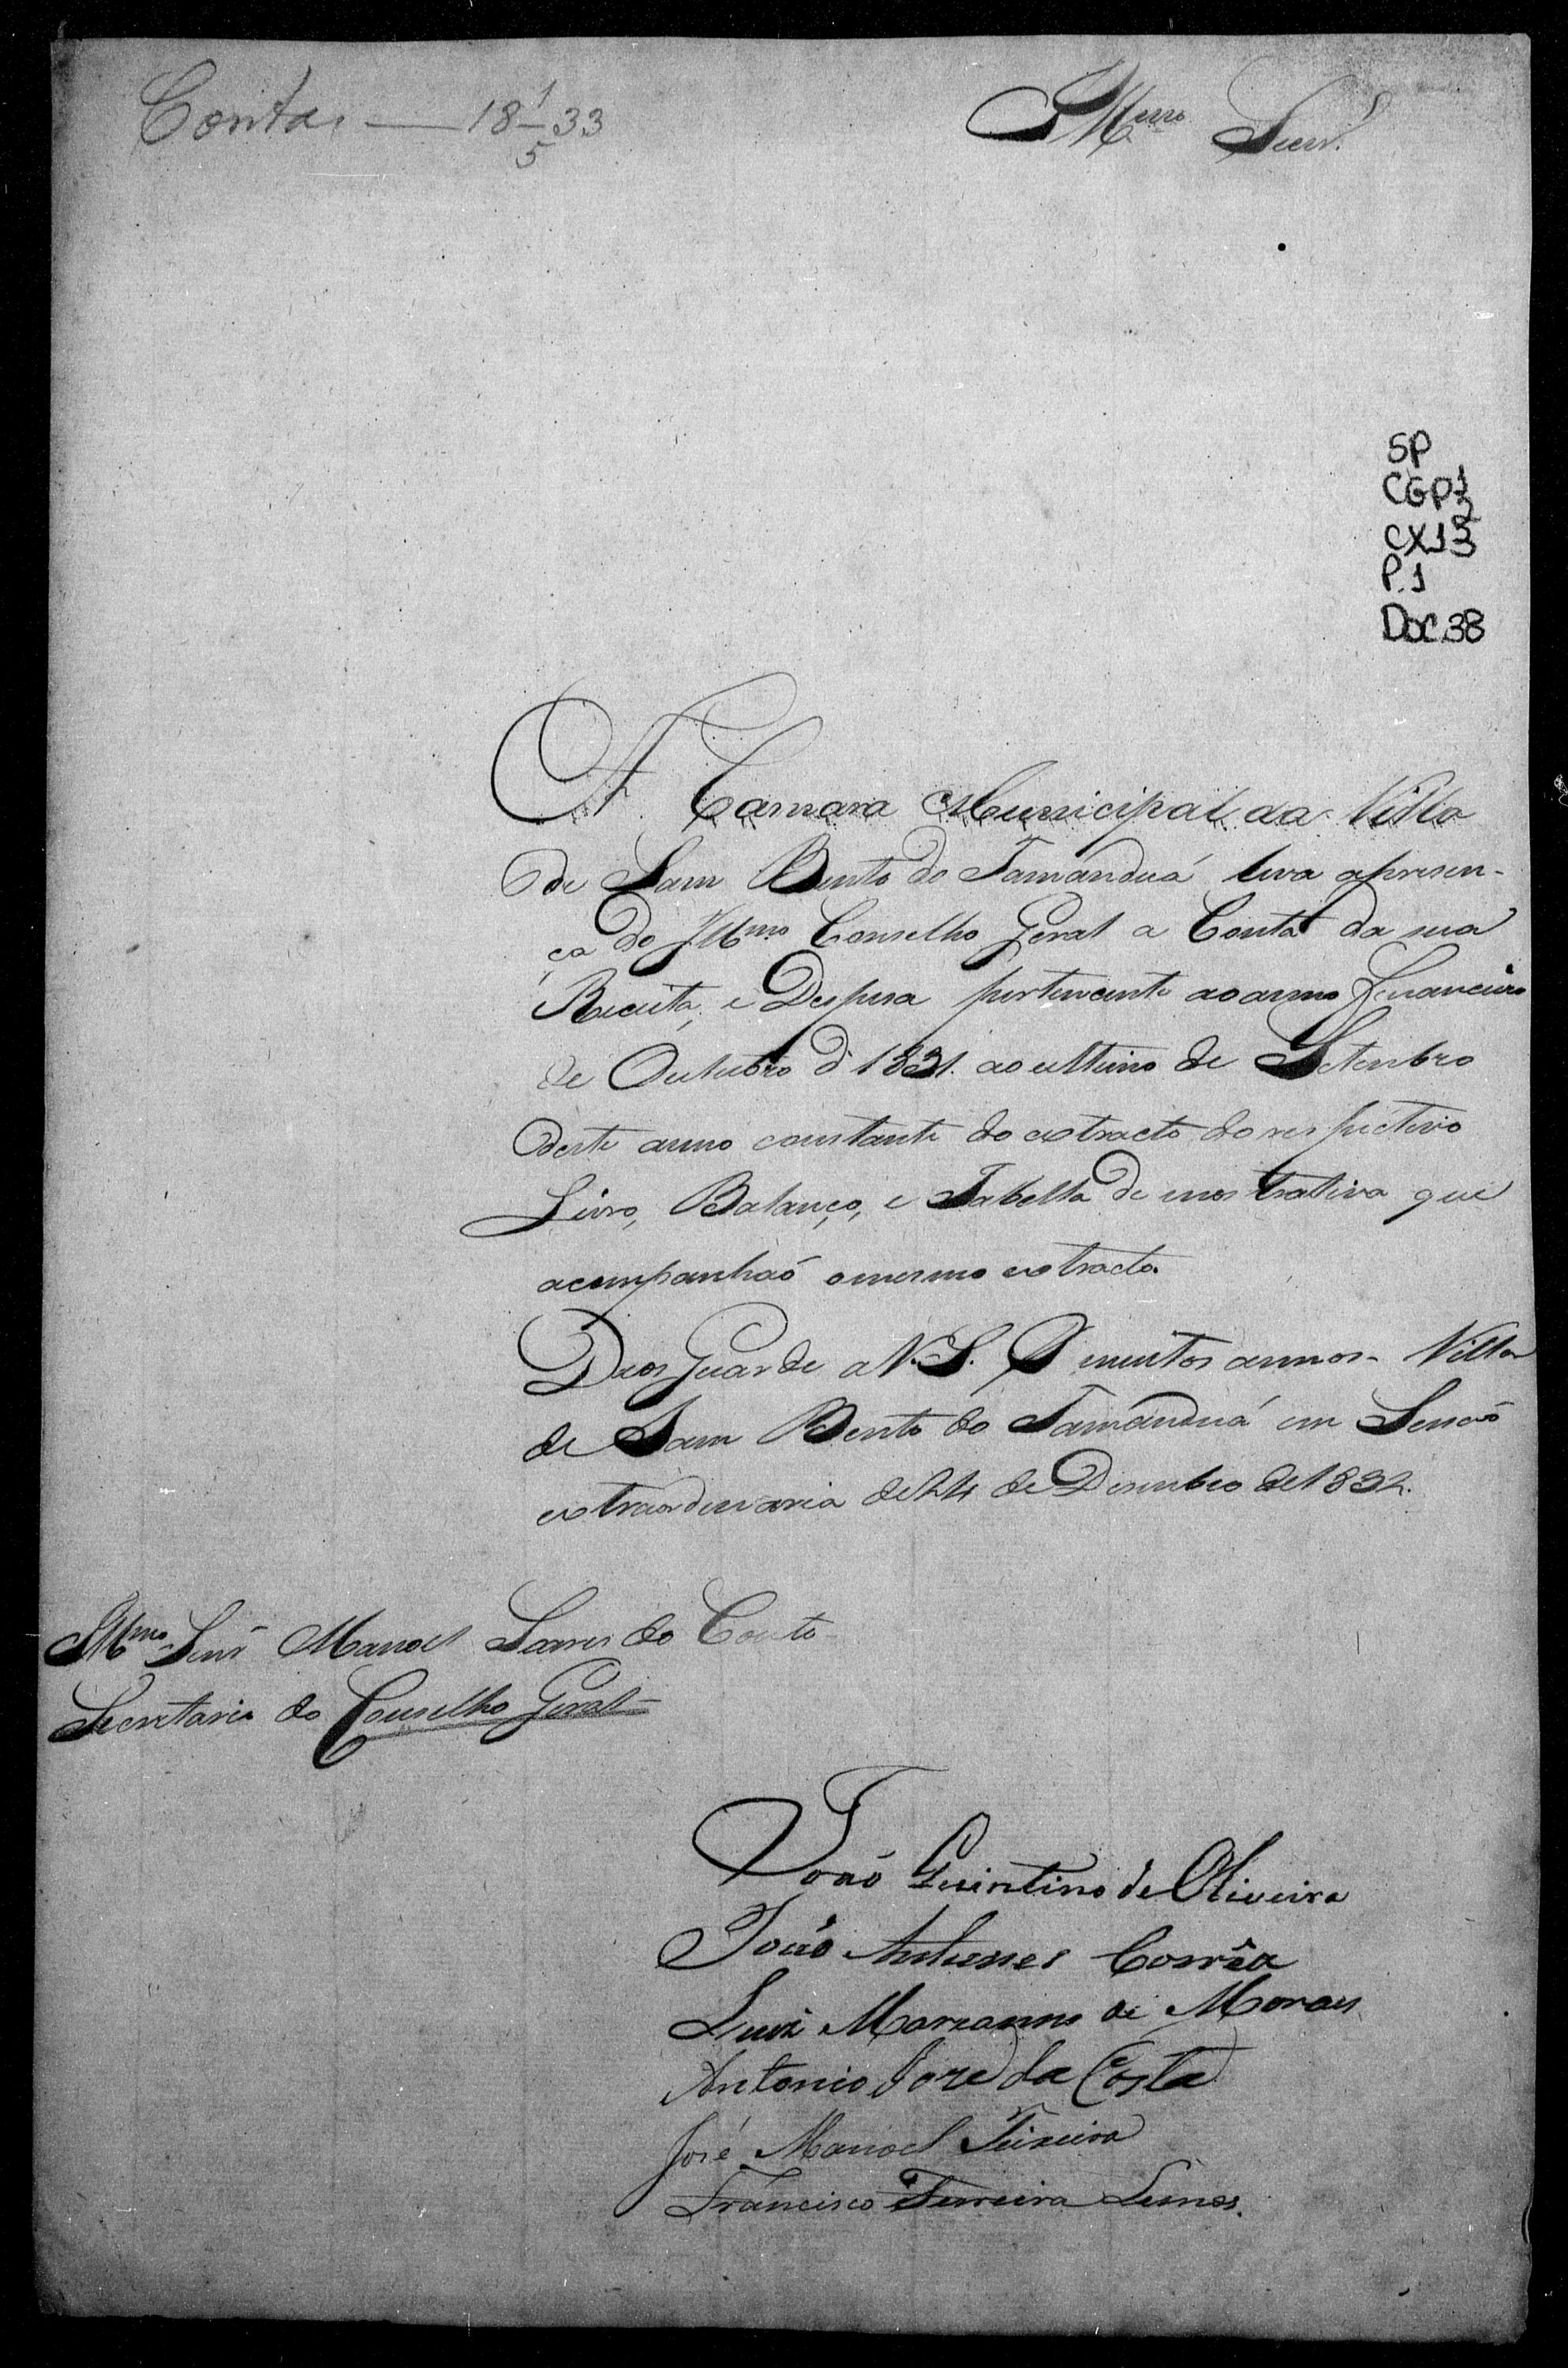 Contas — 18 1/5 33
Illmo Senr.
SP
CGP1
CX13
P.1
Doc.38
A Camara Municipal da Villa
de Sam Bento do Tamanduá leva apresen-
ça do Illmo Conselho Geral a Conta da sua
Receita, e Despesa pertencente ao anno financeiro
de Outubro d 1831. ao ultimo de Setembro
deste anno constante do extracto do respectivo
Livro, Balanço, e Tabella demonstrativa que
acompanhaó o mesmo extracto.
Deos Guarde a V. S. muitos annos - Villa
de Sam Bento do Tamanduá em Sessaõ
extraordinaria de 24 de Dezembro de 1832.
Illmo Senr Manoel Soares do Couto
Secretario do Conselho Geral
Joaó Quintino de Oliveira
Joaó Antunes Corrêa
Luiz Marianno de Moraes
Antonio Joze da Costa
José Manoel Teixeira
Francisco Ferreira Lemos.